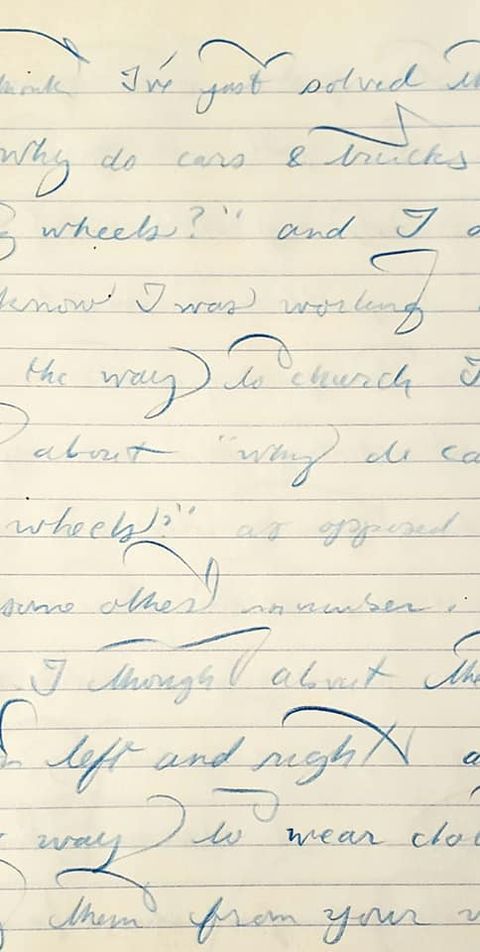 think I've just solved th
why do cars & trucks
wheels?" and I
know I was working
the way to church I
about "why do ca
wheels?" as opposed
some other number.
I though about the
left and right a
way to wear clot
them from your